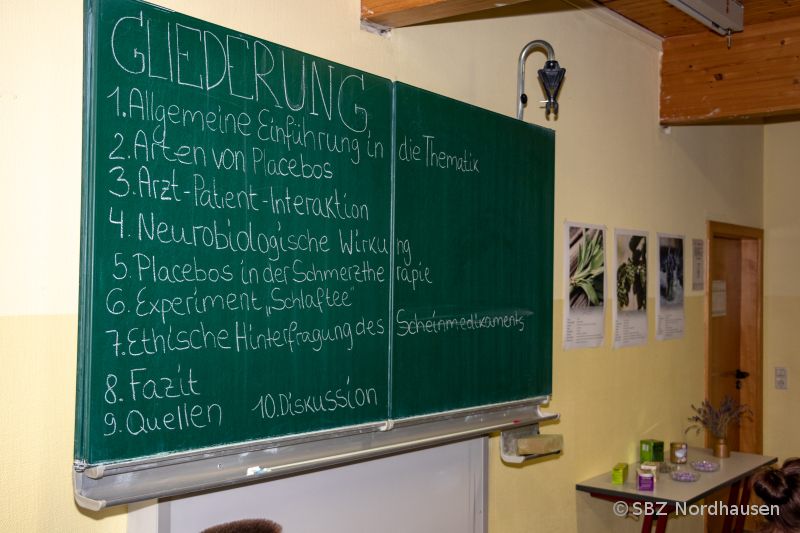 GLIEDERUNG
1. Allgemeine Einführung in die Thematik
2. Arten von Placebos
3. Arzt-Patient-Interaktion
4. Neurobiologische Wirkung
5. Placebos in der Schmerztherapie
6. Experiment „Schlaftee"
7. Ethische Hinterfragung des Scheinmedikaments
8. Fazit
9. Quellen 10. Diskussion
© SBZ Nordhausen